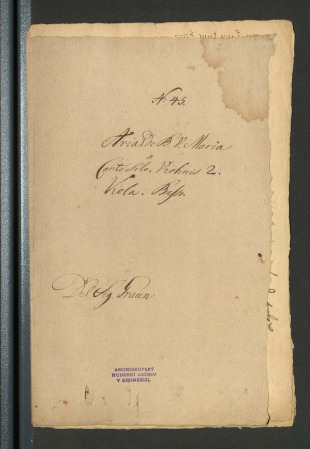 N. 45.
Aria de B. V. Maria
a
Canto Solo. Violinis 2.
Viola. Basso.
Del Sig. Graun
ARCIBISKUPSKÝ
HUDEBNÍ ARCHIV
V KROMĚŘÍŽI.